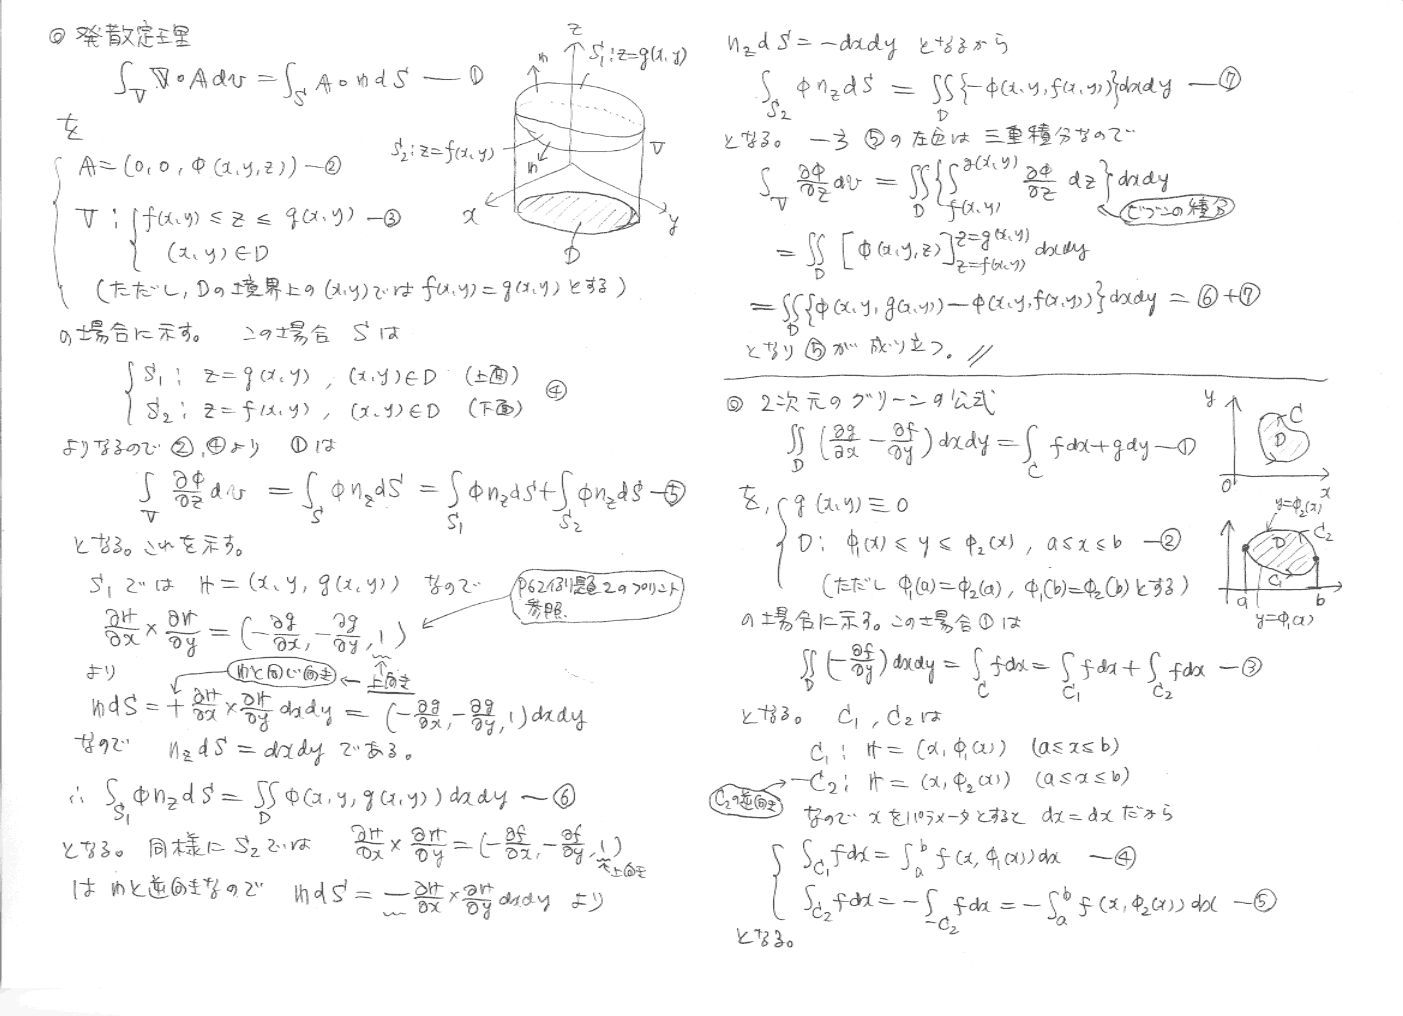 ◎ 発散定理
∫_V ∇・A dv = ∫_S A・n dS —①
を
A = (0, 0, φ(x, y, z)) —②
V : { f(x,y) ≤ z ≤ g(x,y) —③
(x, y) ∈ D
(ただし, Dの境界上の(x,y)では f(x,y) = g(x,y) とする)
の場合に示す。 この場合 S は
S₁ : z = g(x,y) , (x,y)∈D (上面)
S₂ : z = f(x,y) , (x,y)∈D (下面) ④
よりなるので ②,④より ①は
∫_V ∂φ/∂z dv = ∫_S φn_z dS = ∫_S₁ φn_z dS + ∫_S₂ φn_z dS —⑤
となる。これを示す。
S₁では r = (x, y, g(x,y)) なので
∂r/∂x × ∂r/∂y = (-∂g/∂x, -∂g/∂y, 1)
P62 例題2のプリント
参照.
より nと同じ向き ← 上向き
n dS = + ∂r/∂x × ∂r/∂y dxdy = (-∂g/∂x, -∂g/∂y, 1) dxdy
なので n_z dS = dxdy である。
∴ ∫_S₁ φn_z dS = ∬_D φ(x, y, g(x,y)) dxdy —⑥
となる。同様に S₂では ∂r/∂x × ∂r/∂y = (-∂f/∂x, -∂f/∂y, 1)
上向き
は nと逆向きなので n dS = - ∂r/∂x × ∂r/∂y dxdy より
z
S₁ : z = g(x, y)
n
S₂ : z = f(x, y)
n
V
x
y
D
n_z dS = -dxdy となるから
∫_S₂ φn_z dS = ∬_D {-φ(x, y, f(x,y))} dxdy —⑦
となる。一方 ⑤の左辺は 三重積分なので
∫_V ∂φ/∂z dv = ∬_D {∫_f(x,y)^g(x,y) ∂φ/∂z dz} dxdy
ビブンの積分
= ∬_D [φ(x,y,z)]_z=f(x,y)^z=g(x,y) dxdy
= ∬_D {φ(x, y, g(x,y)) - φ(x, y, f(x,y))} dxdy = ⑥+⑦
となり ⑤が 成り立つ。//
◎ 2次元のグリーンの公式
∬_D (∂g/∂x - ∂f/∂y) dxdy = ∫_C fdx + gdy —①
y
C
D
0
x
を, g(x,y) ≡ 0
D : φ₁(x) ≤ y ≤ φ₂(x) , a≤x≤b —②
(ただし φ₁(a)=φ₂(a), φ₁(b)=φ₂(b) とする)
y=φ₂(x)
C₂
D
C₁
a
b
y=φ₁(x)
の場合に示す。この場合①は
∬_D (-∂f/∂y) dxdy = ∫_C fdx = ∫_C₁ fdx + ∫_C₂ fdx —③
となる。 C₁, C₂は
C₁ : r = (x, φ₁(x)) (a≤x≤b)
-C₂ : r = (x, φ₂(x)) (a≤x≤b)
C₂の逆向き
なので xをパラメータとすると dx = dx だから
∫_C₁ fdx = ∫_a^b f(x, φ₁(x)) dx —④
∫_C₂ fdx = -∫_-C₂ fdx = -∫_a^b f(x, φ₂(x)) dx —⑤
となる。